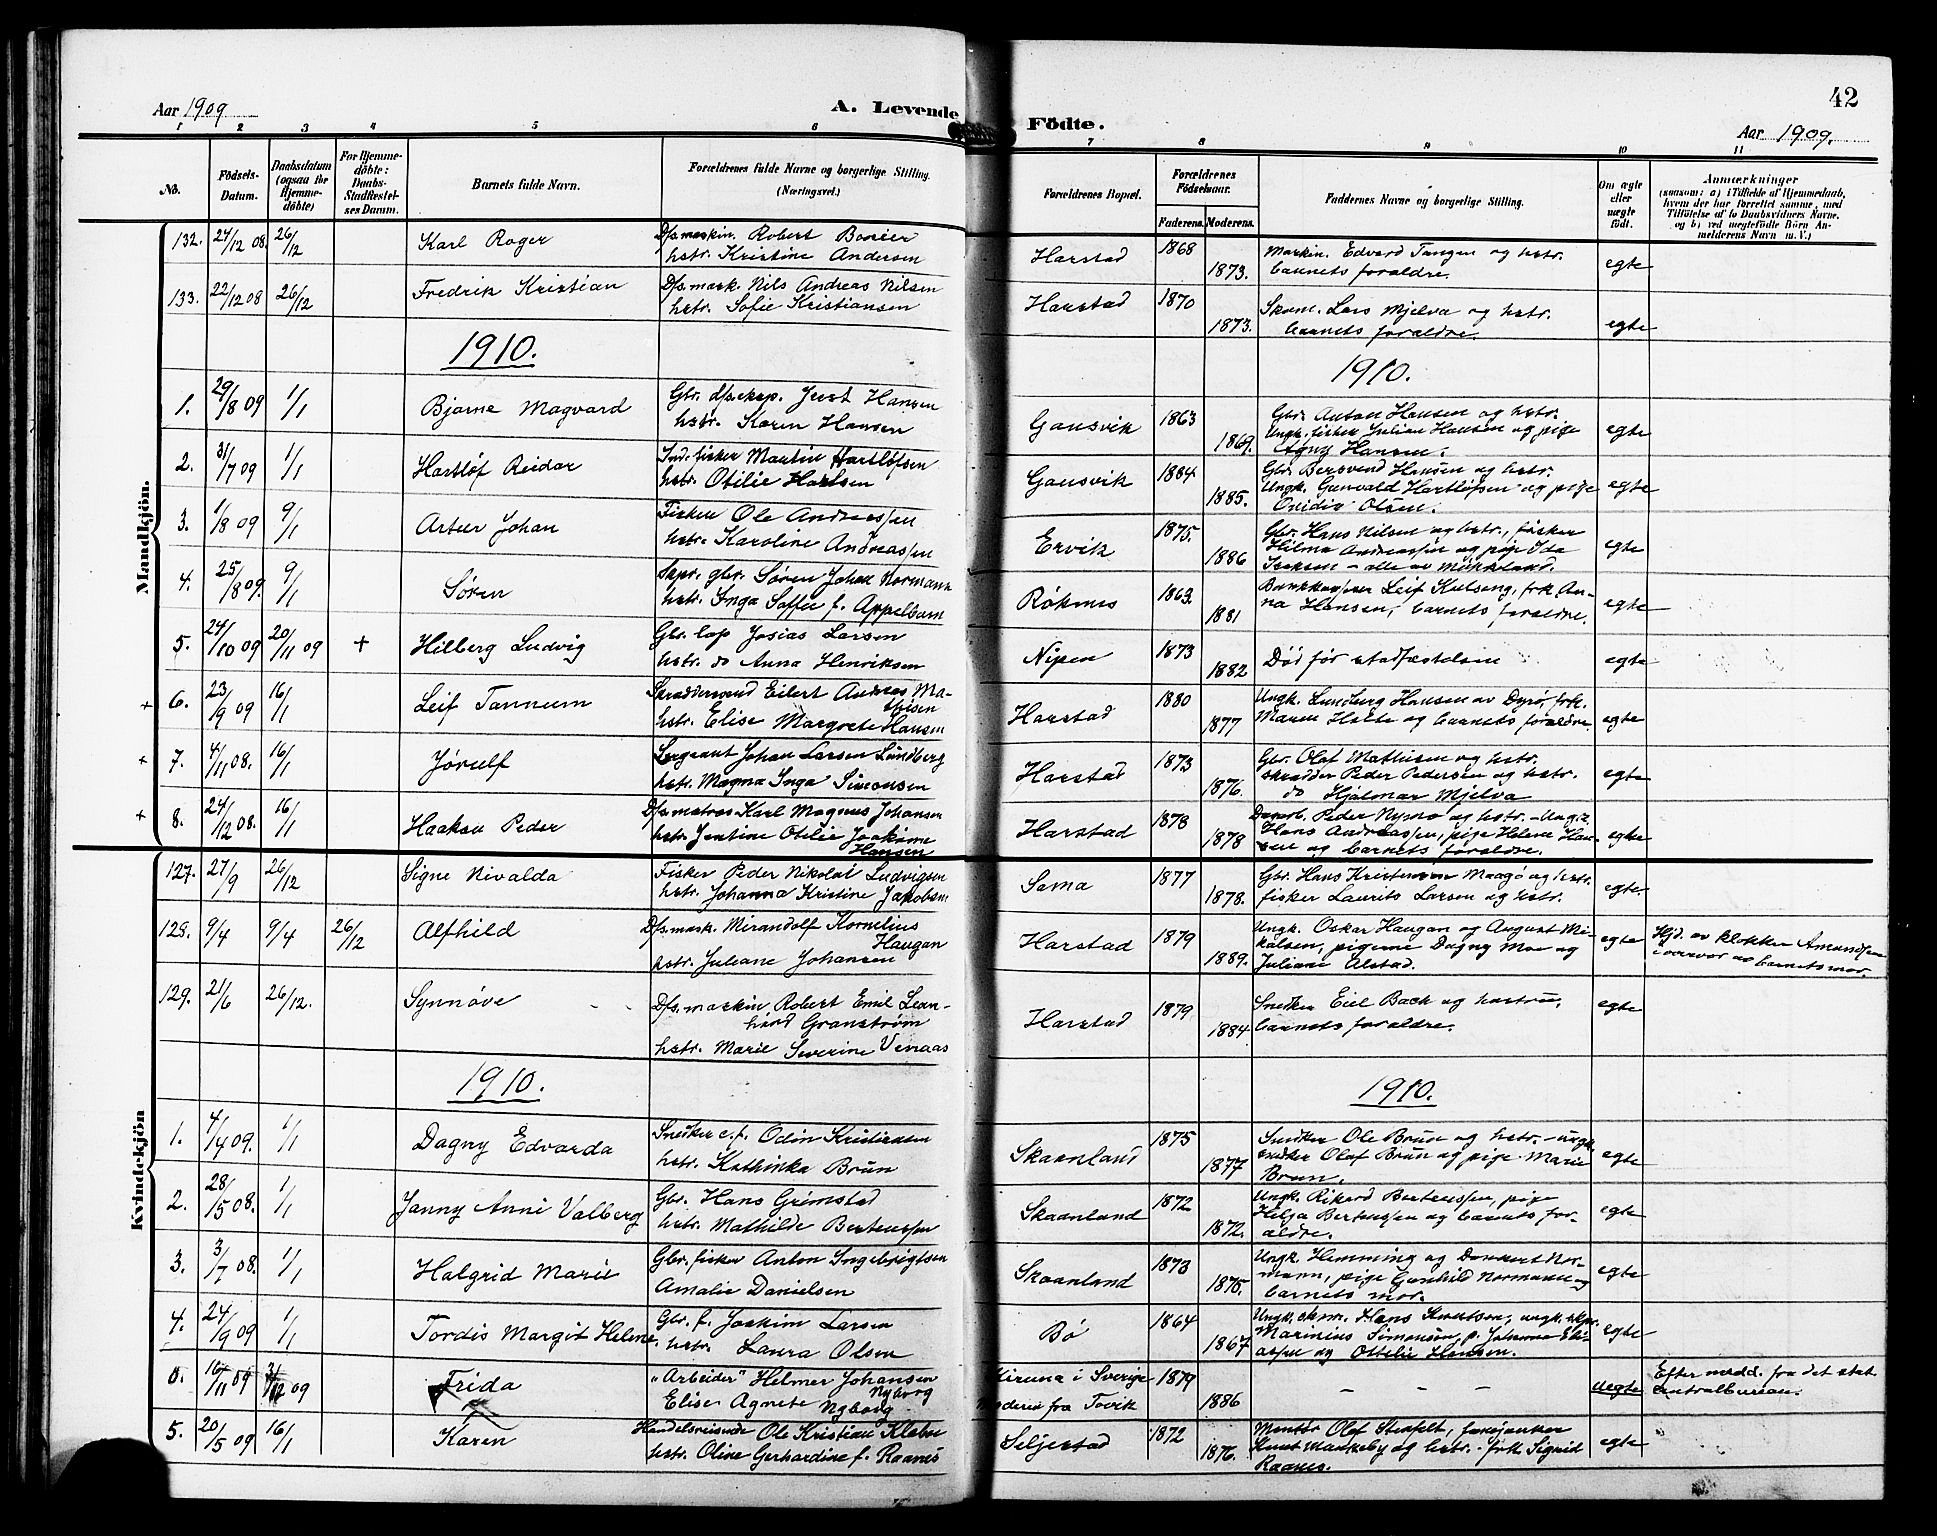 Aar 1909
A. Levende Födte.
42
Aar 1909.
1 2 3 4 5 6 7 8 9 10 11
No.
Födsels-Datum.
Daabsdatum (ogsaa for Hjemme-döbte)
For Hjemme-döbte: Daabs-Stadfæstel-ses Datum.
Barnets fulde Navn.
Forældrenes fulde Navne og borgerlige Stilling. (Næringsvei.)
Forældrenes Bopæl.
Forældrenes Födselsaar.
Faderens. Moderens.
Faddernes Navne og borgerlige Stilling.
Om ægte eller uægte födt.
Anmærkninger
(saasom: a) i Tilfælde af Hjemmedaab,
hvem der har forrettet samme, med
Tilföielse af to Daabsvidners Navne,
og b) ved uægtefödte Börn An-
melderens Navn m. V.)
Mandkjön.
132. 24/12 08. 26/12 Karl Roger
D/s. maskin. Robert
hstr. Kristine Andersen
Harstad 1868 1873.
Maskin. Edvard Tangen og hstr.
barnets forældre.
egte
133. 22/12 08 26/12 Fredrik Kristian
D/s. mask. Nils Andreas Nilsen
hstr. Sofie Kristiansen
Harstad 1870 1873.
Skom. Lars Mjelva og hstr.
barnets forældre.
egte
1910.
1910.
1. 29/8 09 1/1 Bjarne Magvard
Gbr. d/s. eksp. Jent Hansen
hstr. Karen Hansen
Gausvik 1863 1869.
Gbr. Anton Hansen og hstr.
Ungk. fisker Julian Hansen og pige
Agny Hansen.
egte
2. 31/7 09 1/1 Hartløf Reidar
Ind. fisker Martin Hartløfsen
hstr. Otilie Hartsen
Gausvik 1884 1885.
Gbr. Bersvend Hansen og hstr.
Ungk. Gunvald Hartløfsen og pige
Ovidie Olsen.
egte
3. 1/8 09 9/1 Artur Johan
Fisker Ole Andreassen
hstr. Karoline Andreassen
Ervik 1875. 1886
Gbr. Hans Nilsen og hstr., fisker
Hilmar Andreassen og pige Ida
Isaksen – alle av Møkkeland.
egte
4. 25/8 09. 9/1 Søren
Skpr. gbr. Søren Johan Normann
hstr. Inga Soffie f. Appelbom
Røkenes 1863. 1881
Bankkasserer Leif Kulseng, frk. An-
na Hansen, barnets forældre.
egte
5. 24/10 09 20/11 09 + Hilberg Ludvig
Gbr. lap Josias Larsen
hstr. do Anna Henriksen
Nipen 1873 1882
Død før stadfæstelsen
egte
+ 6. 23/9 09 16/1 Leif Tannum
Skræddersvend Eilert Andreas Ma-
thisen
hstr. Elise Margrete Hansen
Harstad 1880 1877
Ungk. Lundberg Hansen av Dyrø, frk.
Maren Holte og barnets forældre.
egte
+ 7. 4/11 08. 16/1 Jørulf
Sergeant Johan Larsen Lundberg
hstr. Magna Inga Simonsen
Harstad 1873 1876.
Gbr. Olaf Mathisen og hstr.
skrædder Peder Pedersen og hstr.
do Hjalmar Mjelva
egte
+ 8. 24/12 08. 16/1 Haakon Peder
D/s. matros Karl Magnus Johansen
hstr. Jentine Otilie Joakime
Hansen
Harstad 1878 1878
Peder Nymo og hstr. – Ungk.
Hans Andreassen, pige Helene Han-
sen og barnets forældre.
egte
Kvindekjön
127. 27/9 26/12 Signe Nivalda
Fisker Peder Nikolai Ludvigsen
hstr. Johanna Kristine Jakobsen
Sama 1877 1878.
Gbr. Hans Kristensen Maagø og hstr.
fisker Laurits Larsen og hstr.
egte
128. 9/4 9/4 26/12 Alfhild
D/s. mask. Mirandolf Kornelius
Haugan
hstr. Juliane Johansen
Harstad 1879 1889.
Ungk. Oskar Haugan og August Mi-
kalsen, pigerne Dagny Moe og
Juliane Alstad.
egte
Hjd. av klokker Amundsen
overvær av barnets mor.
129. 21/6 26/12. Synnøve
D/s. maskin Robert Emil Leon-
hard Granstrøm
hstr. Marie Severine Venaas
Harstad 1879 1884
Snedker Eiel Back og hustru,
barnets forældre.
egte
1910.
1910.
1. 4/4 09. 1/1 Dagny Edvarda
Snedker e. f. Odin Kristiansen
hstr. Kathinka Brun
Skaanland 1875 1877
Snedker Ole Brun og hstr. – ungk.
snedker Olaf Brun og pige Marie
Brun.
egte
2. 28/5 08. 1/1 Janny Anni Valberg
Gbr. Hans Grimstad
hstr. Mathilde Berteussen
Skaanland 1872 1872.
Ungk. Rikard Berteussen, pige
Helga Berteussen og barnets for-
ældre.
egte
3. 3/7 08. 1/1 Halgrid Marie
Gbr. fisker Anton Ingebrigtsen
Amalie Danielsen
Skaanland 1873 1875.
Ungk. Hemming og Dankert Nor-
mann, pige Gunhild Normann og
barnets mor.
egte
4. 24/9 09 1/1 Tordis Margit Helene
Gbr. f. Joakim Larsen
hstr. Laura Olsen
Bø 1864 1867
Ungk. Hans Knutson, ungk. skpr.
Marinius Simonsen, p. Johanna Eli-
assen og Ottelie Hansen.
egte
0. 16/11 09 31/12 09 Frida
"Arbeider" Helmer Johansen
Nyborg
Elise Agnete Nyborg
Kiruna i Sverige
Moderen fra Tovik
1879 1886
– – – –
uegte
Efter medd. fra det stat.
centralbureau.
5. 20/5 09 16/1 Karen
Handelsreisende Ole Kristian Kleboe
hstr. Oline Gerhardine f. Raanes
Seljestad 1872 1876.
Montør Olaf Stenfelt,
Knut Markeby og hstr. – frk. Sigrid
Raanes.
egte